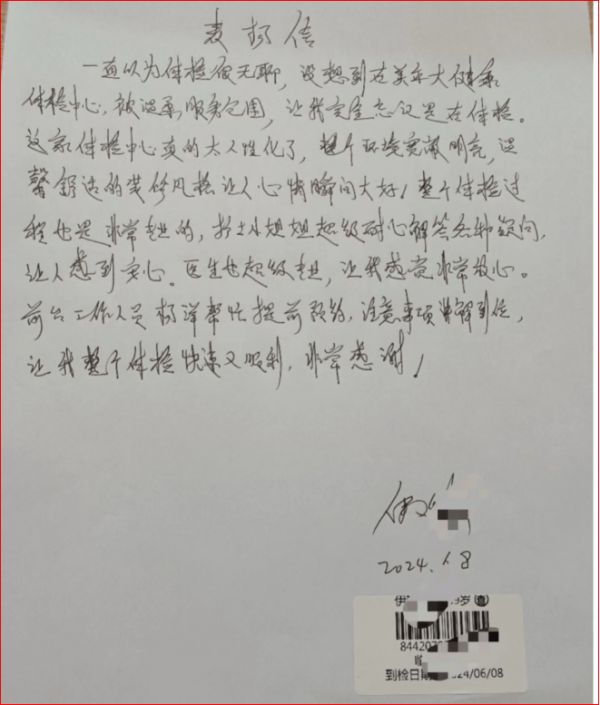 表扬信
一直以为体检很无聊,没想到在美年大健康
体检中心,被温柔服务包围,让我完全忘记是在体检。
这家体检中心真的太人性化了,整个环境宽敞明亮,温
馨舒适的装修风格让人心情瞬间大好!整个体检过
程也是非常专业的,护士小姐姐超级耐心解答各种疑问,
让人感到安心。医生也超级专业,让我感觉非常放心。
前台工作人员杨洋帮忙提前预约,注意事项讲解到位,
让我整个体检快速又顺利,非常感谢!
2024.6.8
伊 9岁
84420
到检日期 24/06/08